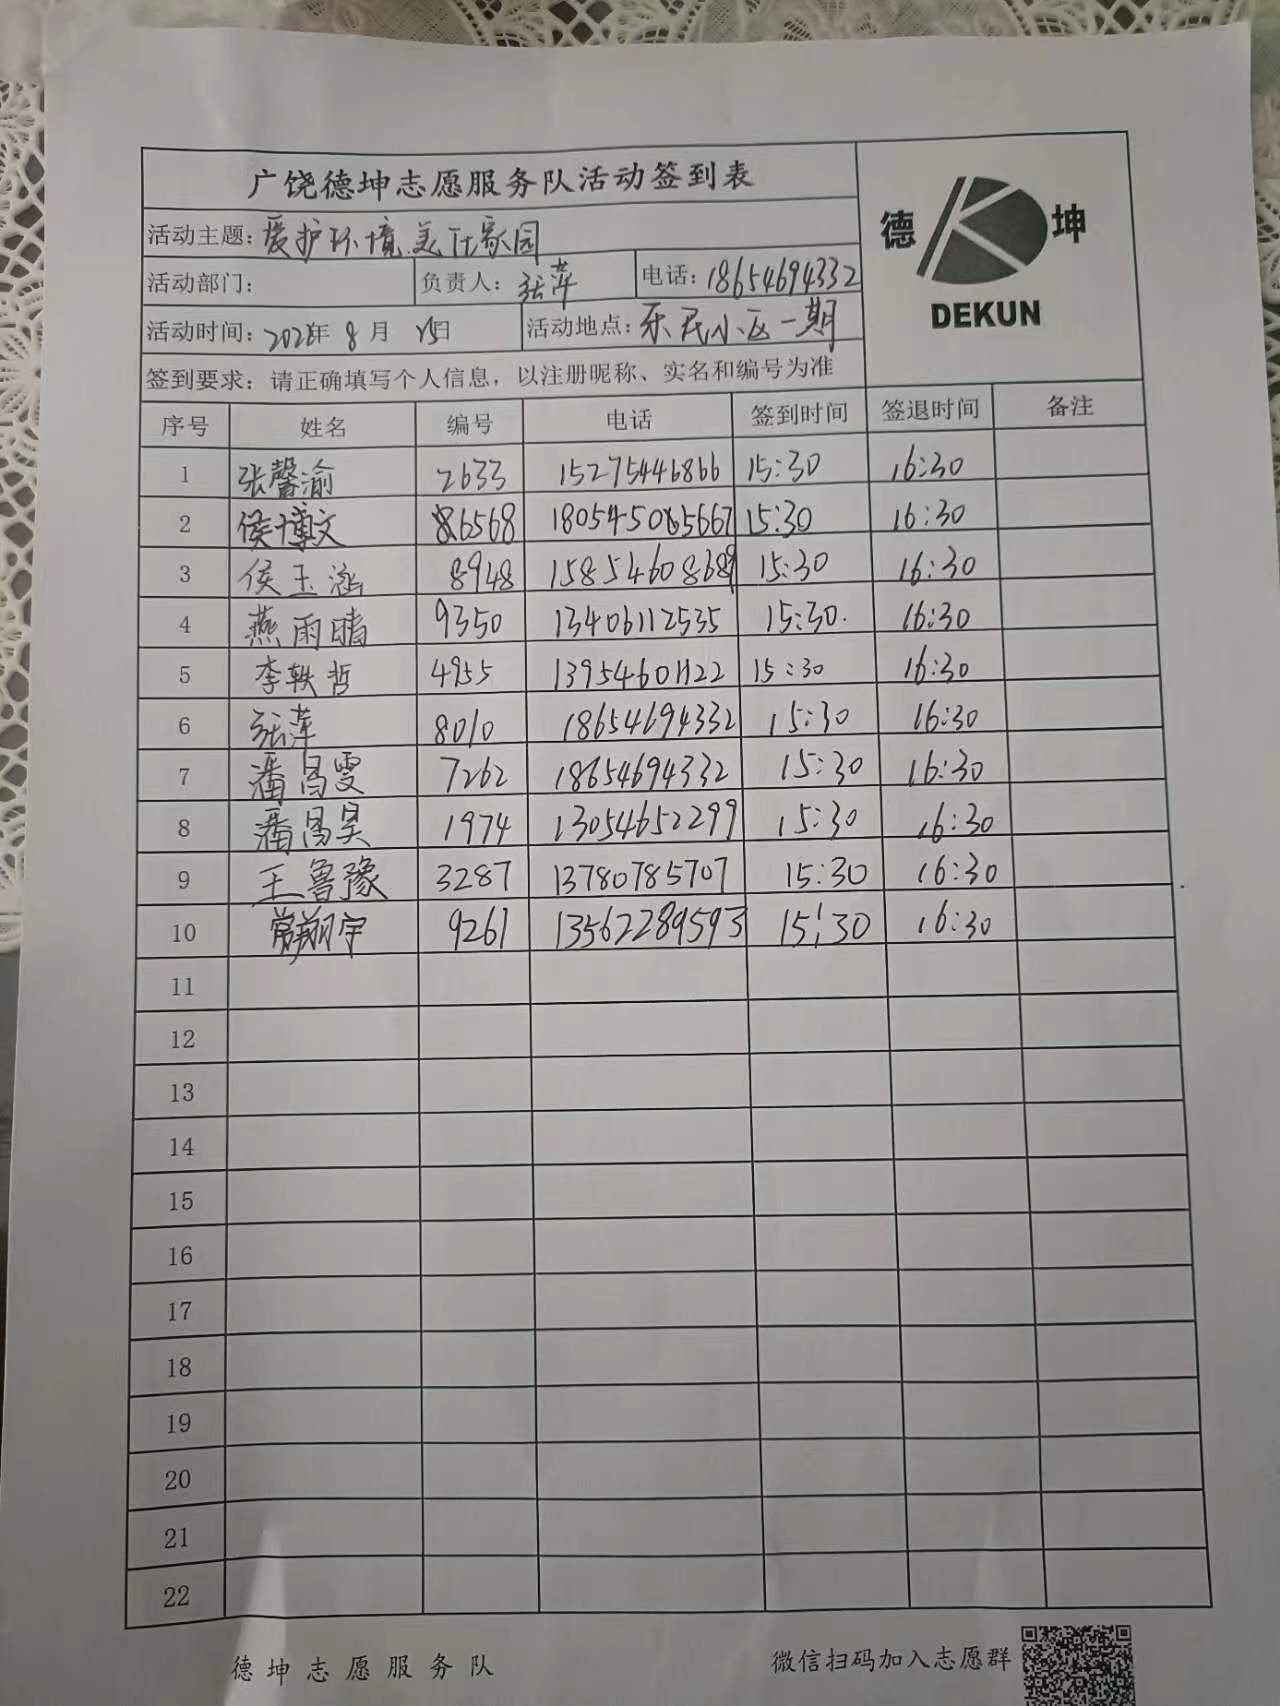 广饶德坤志愿服务队活动签到表
德 坤
DEKUN
活动主题：爱护环境.美化家园
活动部门： 负责人：张萍 电话：18654694332
活动时间：202 年 8月 15日 活动地点：乐民小区一期
签到要求：请正确填写个人信息，以注册昵称、实名和编号为准
序号 姓名 编号 电话 签到时间 签退时间 备注
1 张馨渝 2633 15275446866 15:30 16:30
2 侯博文 86568 15:30 16:30
3 侯玉涵 8948 15:30 16:30
4 燕雨晴 9350 13406112535 15:30. 16:30
5 李轶哲 4955 13954601122 15:30 16:30
6 张萍 8010 18654694332 15:30 16:30
7 潘昌雯 7262 18654694332 15:30 16:30
8 潘昌昊 1974 13054652299 15:30 16:30
9 王鲁豫 3287 13780785707 15:30 16:30
10 常翔宇 9261 13562289593 15:30 16:30
11
12
13
14
15
16
17
18
19
20
21
22
德坤志愿服务队 微信扫码加入志愿群